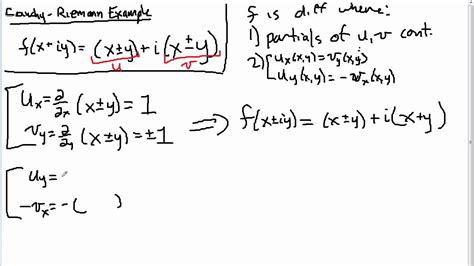 Cauchy-Riemann Example
f(x+iy)=(x±y)+i(x±y)
u v
f is diff where:
1) partials of u,v cont.
2) { uₓ(x,y)=v_y(x,y)
u_y(x,y)=-vₓ(x,y)
uₓ=∂/∂x (x±y)=1
v_y=∂/∂y (x±y)=±1
⟹ f(x±iy)=(x±y)+i(x+y)
u_y=
-vₓ=-( )